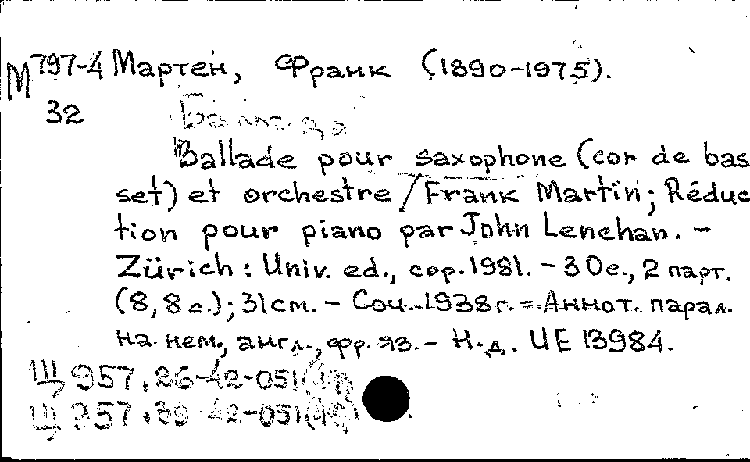 М 797-4 Мартен, Франк (1890-1975).
32
Ballade pour saxophone (cor de bas
set) et orchestre / Frank Martin; Réduc
tion pour piano par John Lenehan. -
Zürich: Univ. ed., cop. 1981. - 30 с., 2 парт.
(8, 8 с.); 31 см. - Соч. 1938 г. = Аннот. парал.
на нем., англ., фр. яз. - Н. д. UE 13984.
Щ 957.26-42-051
Щ 957.39-42-051